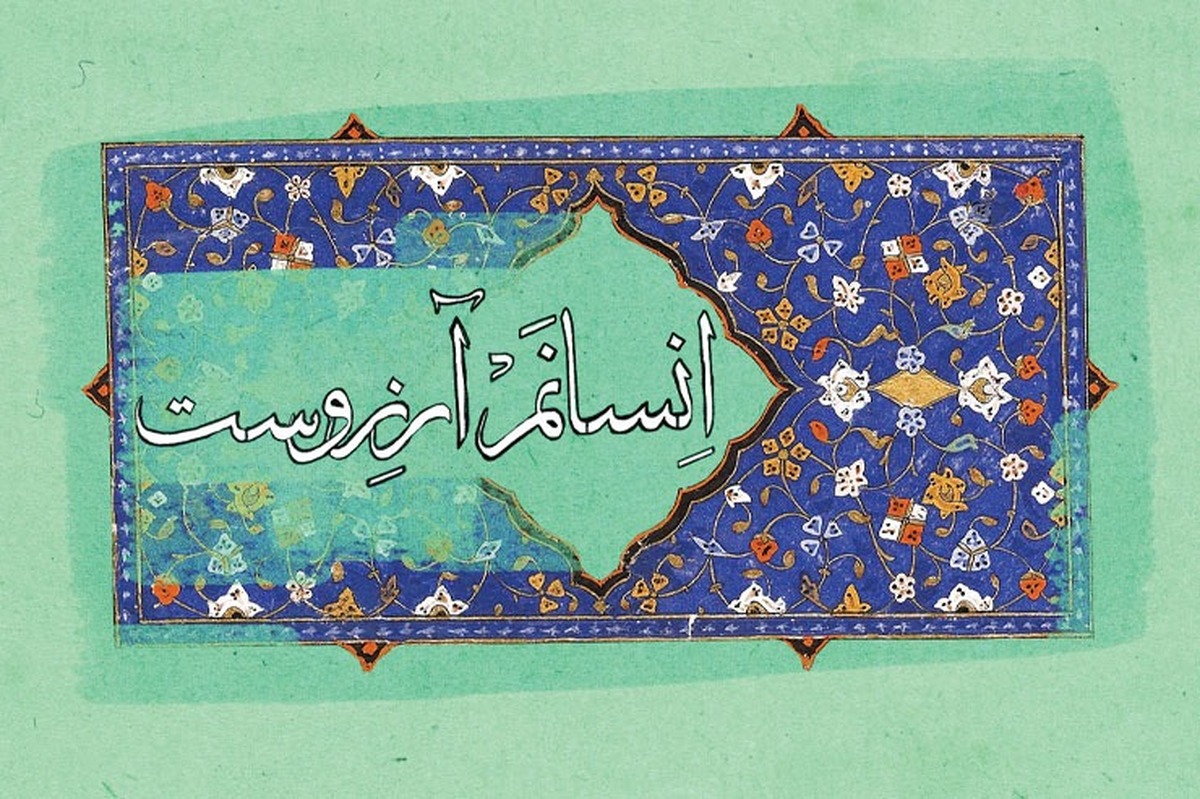 اِنسانَمْ آرزِوست